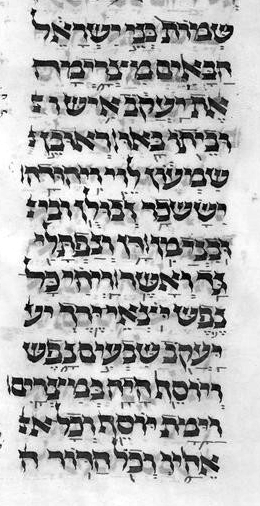 שמות בני ישראל
הבאים מצרימה
את יעקב איש ו
וביתו באו ראובן
שמעון לוי ויהודה
יששכר זבולן ובנ
ובנימן דן ונפתלי
גד ואשר ויהי כל
נפש יצאי ירך יע
יעקב שבעים נפש
ויוסף היה במצרים
וימת יוסף וכל א
אחיו וכל הדור ה